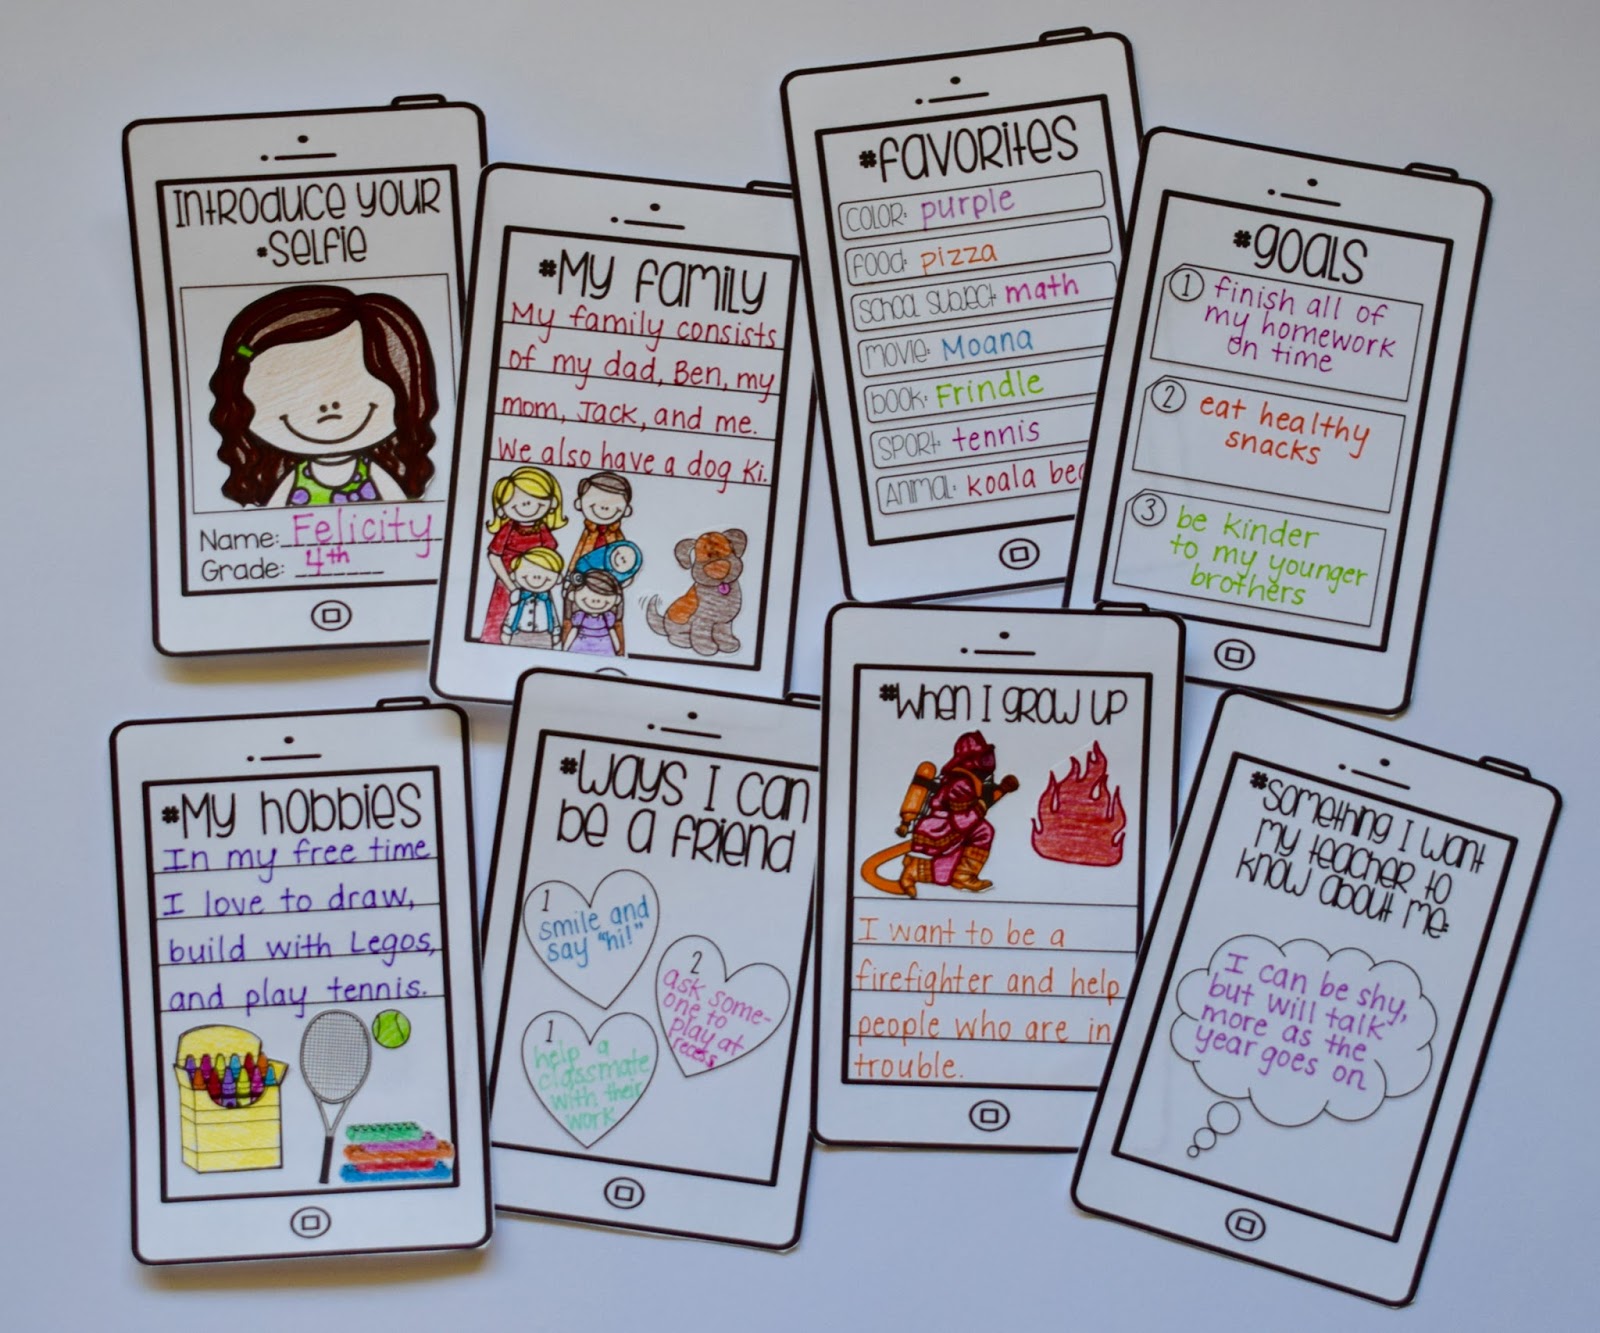 Introduce your
#Selfie
Name: Felicity
Grade: 4th
#My family
My family consists
of my dad, Ben, my
mom, Jack, and me.
We also have a dog Ki.
#Favorites
Color: purple
Food: pizza
School Subject: math
Movie: Moana
Book: Frindle
Sport: tennis
Animal: koala
#Goals
1 finish all of
my homework
on time
2 eat healthy
snacks
3 be kinder
to my younger
brothers
#My hobbies
In my free time
I love to draw,
build with Legos,
and play tennis.
#Ways I can
be a friend
1
smile and
say "hi!"
2
ask some-
one to
play at
recess
1
help a
classmate
with their
work
#When I grow up
I want to be a
firefighter and help
people who are in
trouble.
#Something I want
my teacher to
know about me:
I can be shy,
but will talk
more as the
year goes on